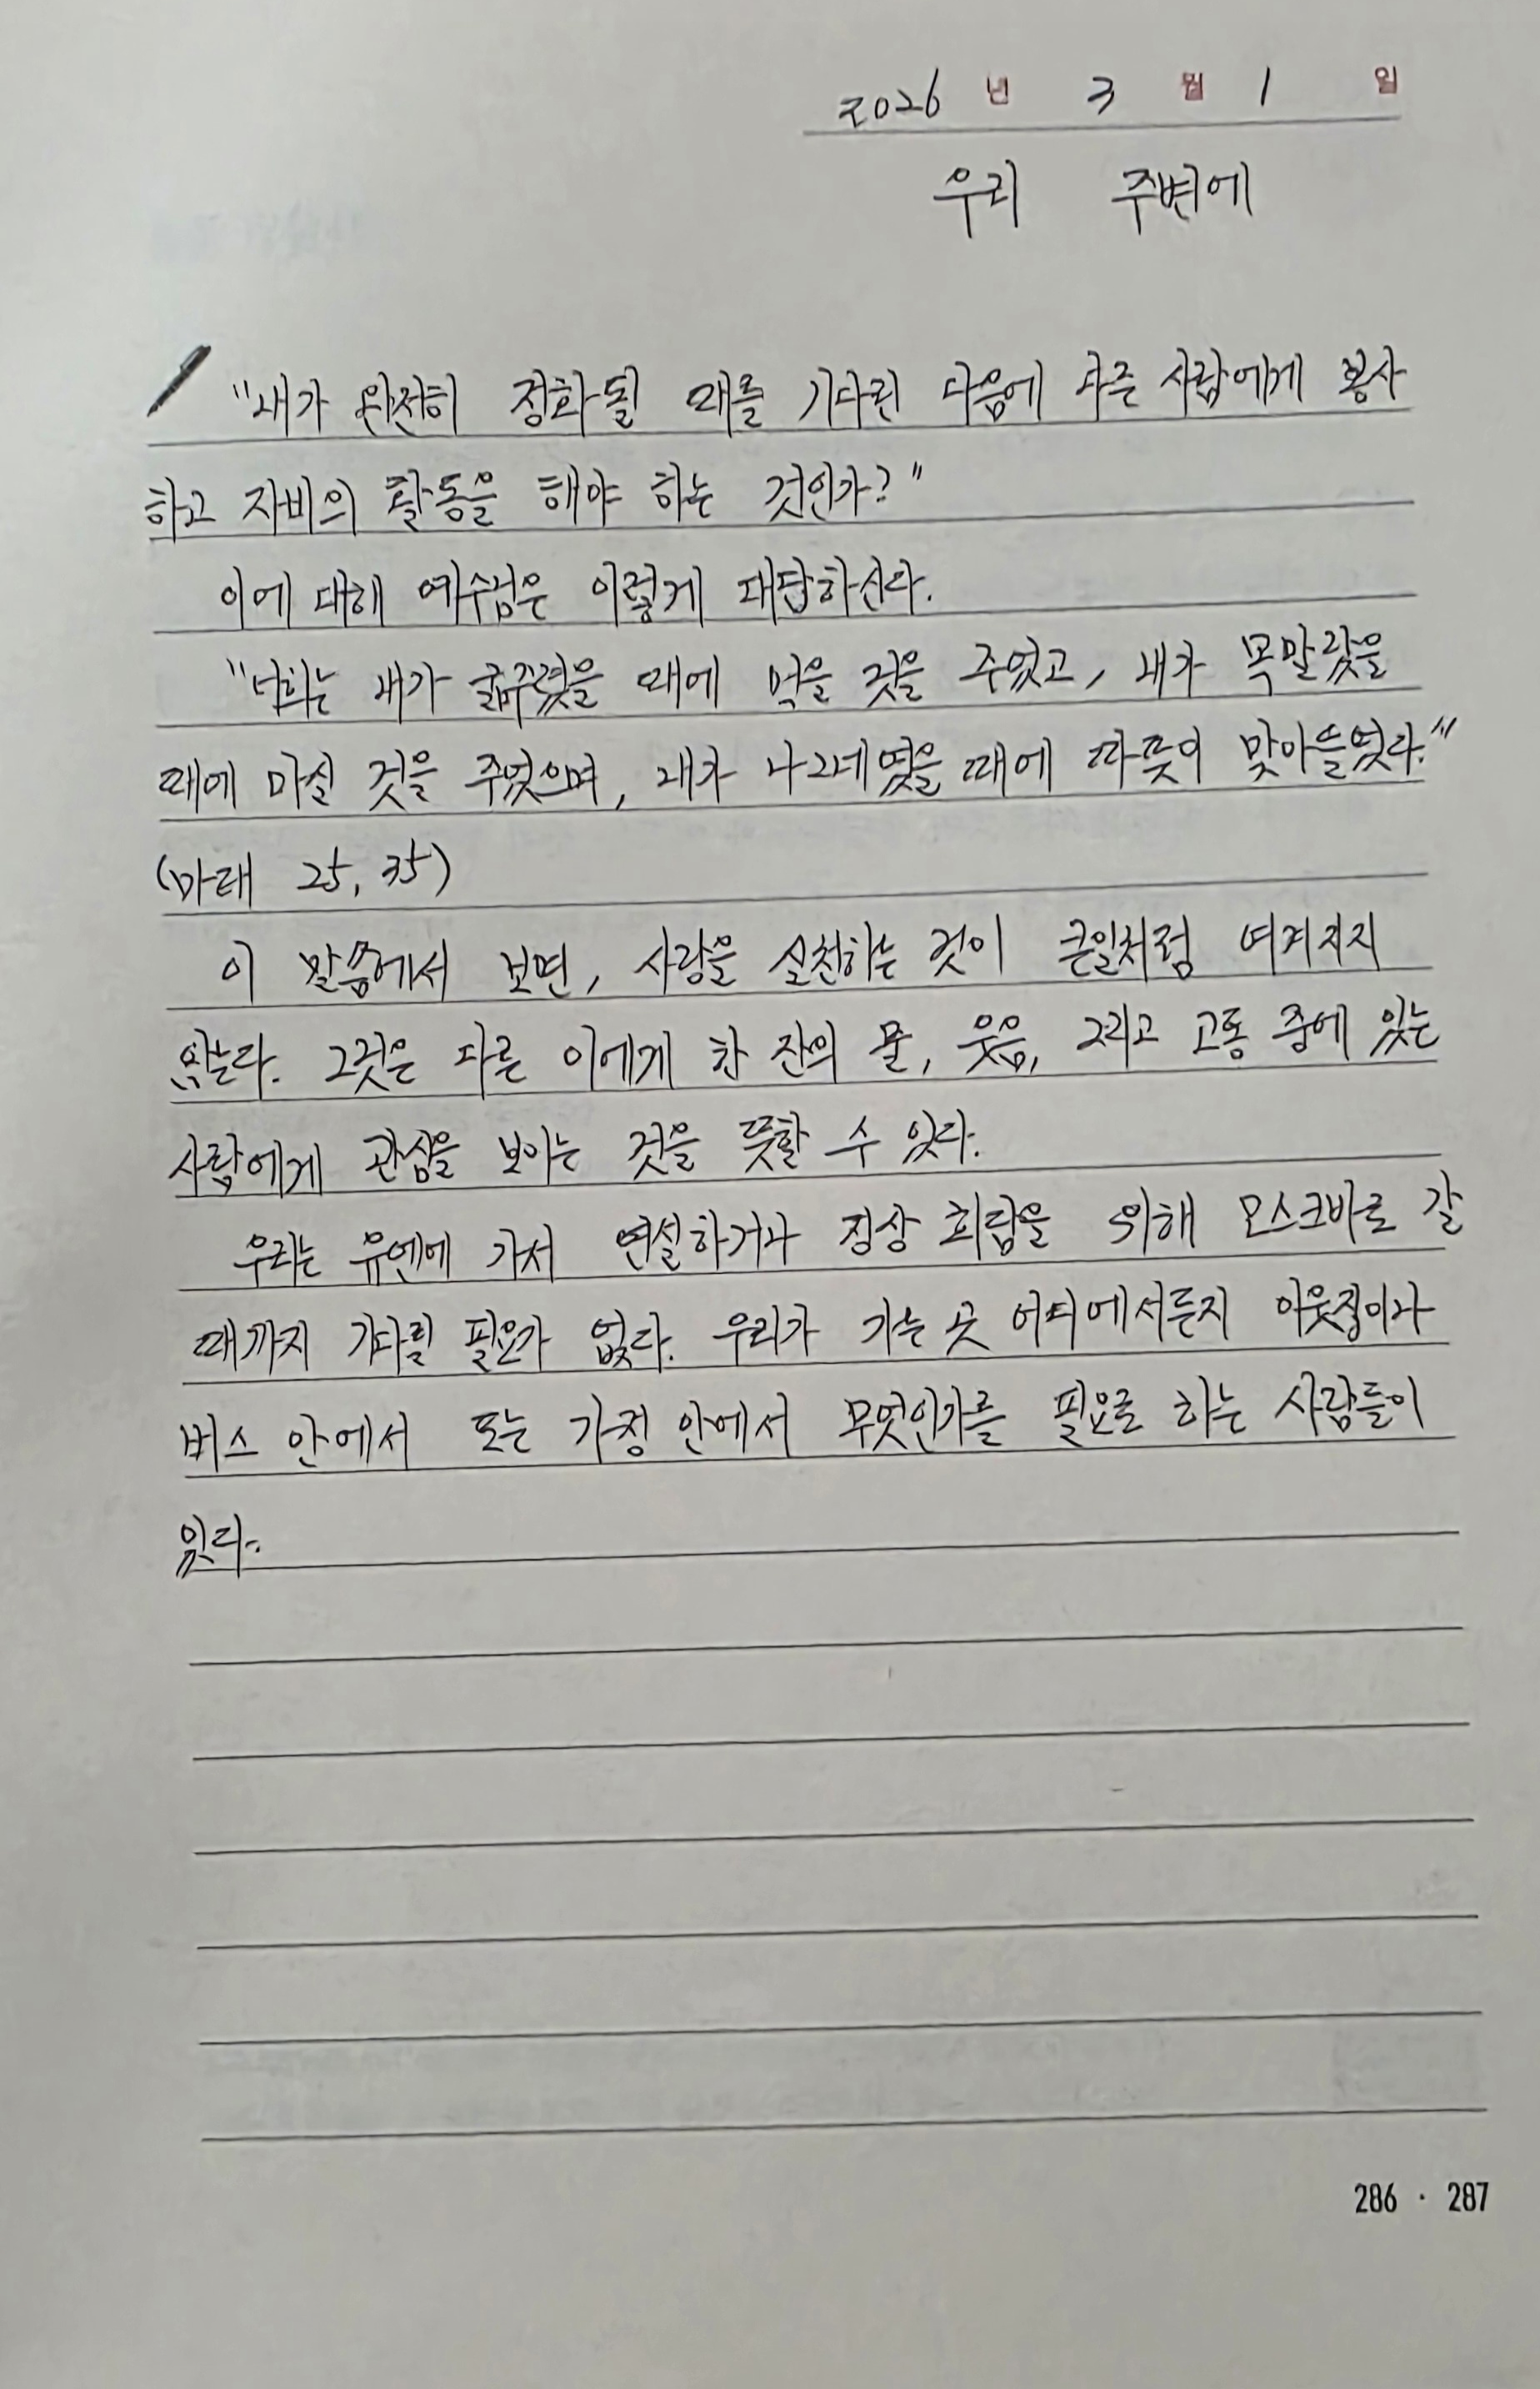 2026 년 3 월 1 일
우리 주변에
"내가 완전히 정화될 때를 기다린 다음에 다른 사람에게 봉사
하고 자비의 활동을 해야 하는 것인가?"
이에 대해 예수님은 이렇게 대답하신다.
"너희는 내가 굶주렸을 때에 먹을 것을 주었고, 내가 목말랐을
때에 마실 것을 주었으며, 내가 나그네였을 때에 따뜻이 맞아들였다."
(마태 25, 35)
이 말씀에서 보면, 사랑을 실천하는 것이 큰일처럼 여겨지지
않는다. 그것은 다른 이에게 한 잔의 물, 웃음, 그리고 고통 중에 있는
사람에게 관심을 보이는 것을 뜻할 수 있다.
우리는 유엔에 가서 연설하거나 정상 회담을 위해 모스크바로 갈
때까지 기다릴 필요가 없다. 우리가 가는 곳 어디에서든지 이웃집이나
버스 안에서 또는 가정 안에서 무엇인가를 필요로 하는 사람들이
있다.
286 · 287